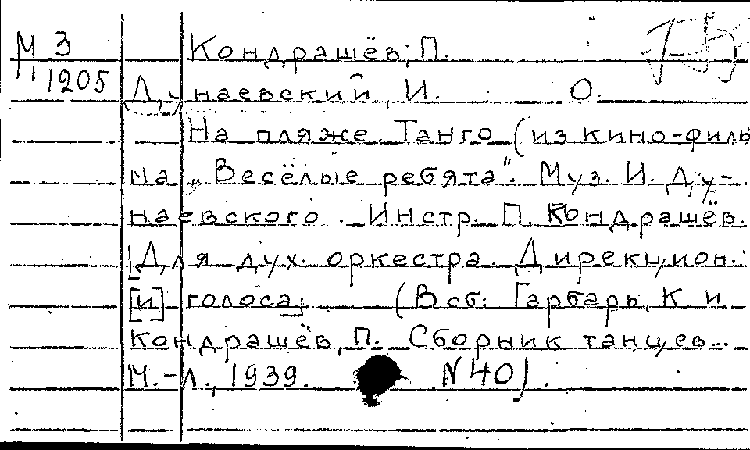 М 3 Кондрашёв, П.
11 1205 Дунаевский, И. О.
На пляже. Танго (из кино-филь
ма „Весёлые ребята". Муз. И. Ду-
наевского. Инстр. П. Кондрашёв.
[Для дух. оркестра. Дирекцион.
[и] голоса.
(В сб: Гарбарь, К и
Кондрашёв, П. Сборник танцев..
М.-Л., 1939. N40).